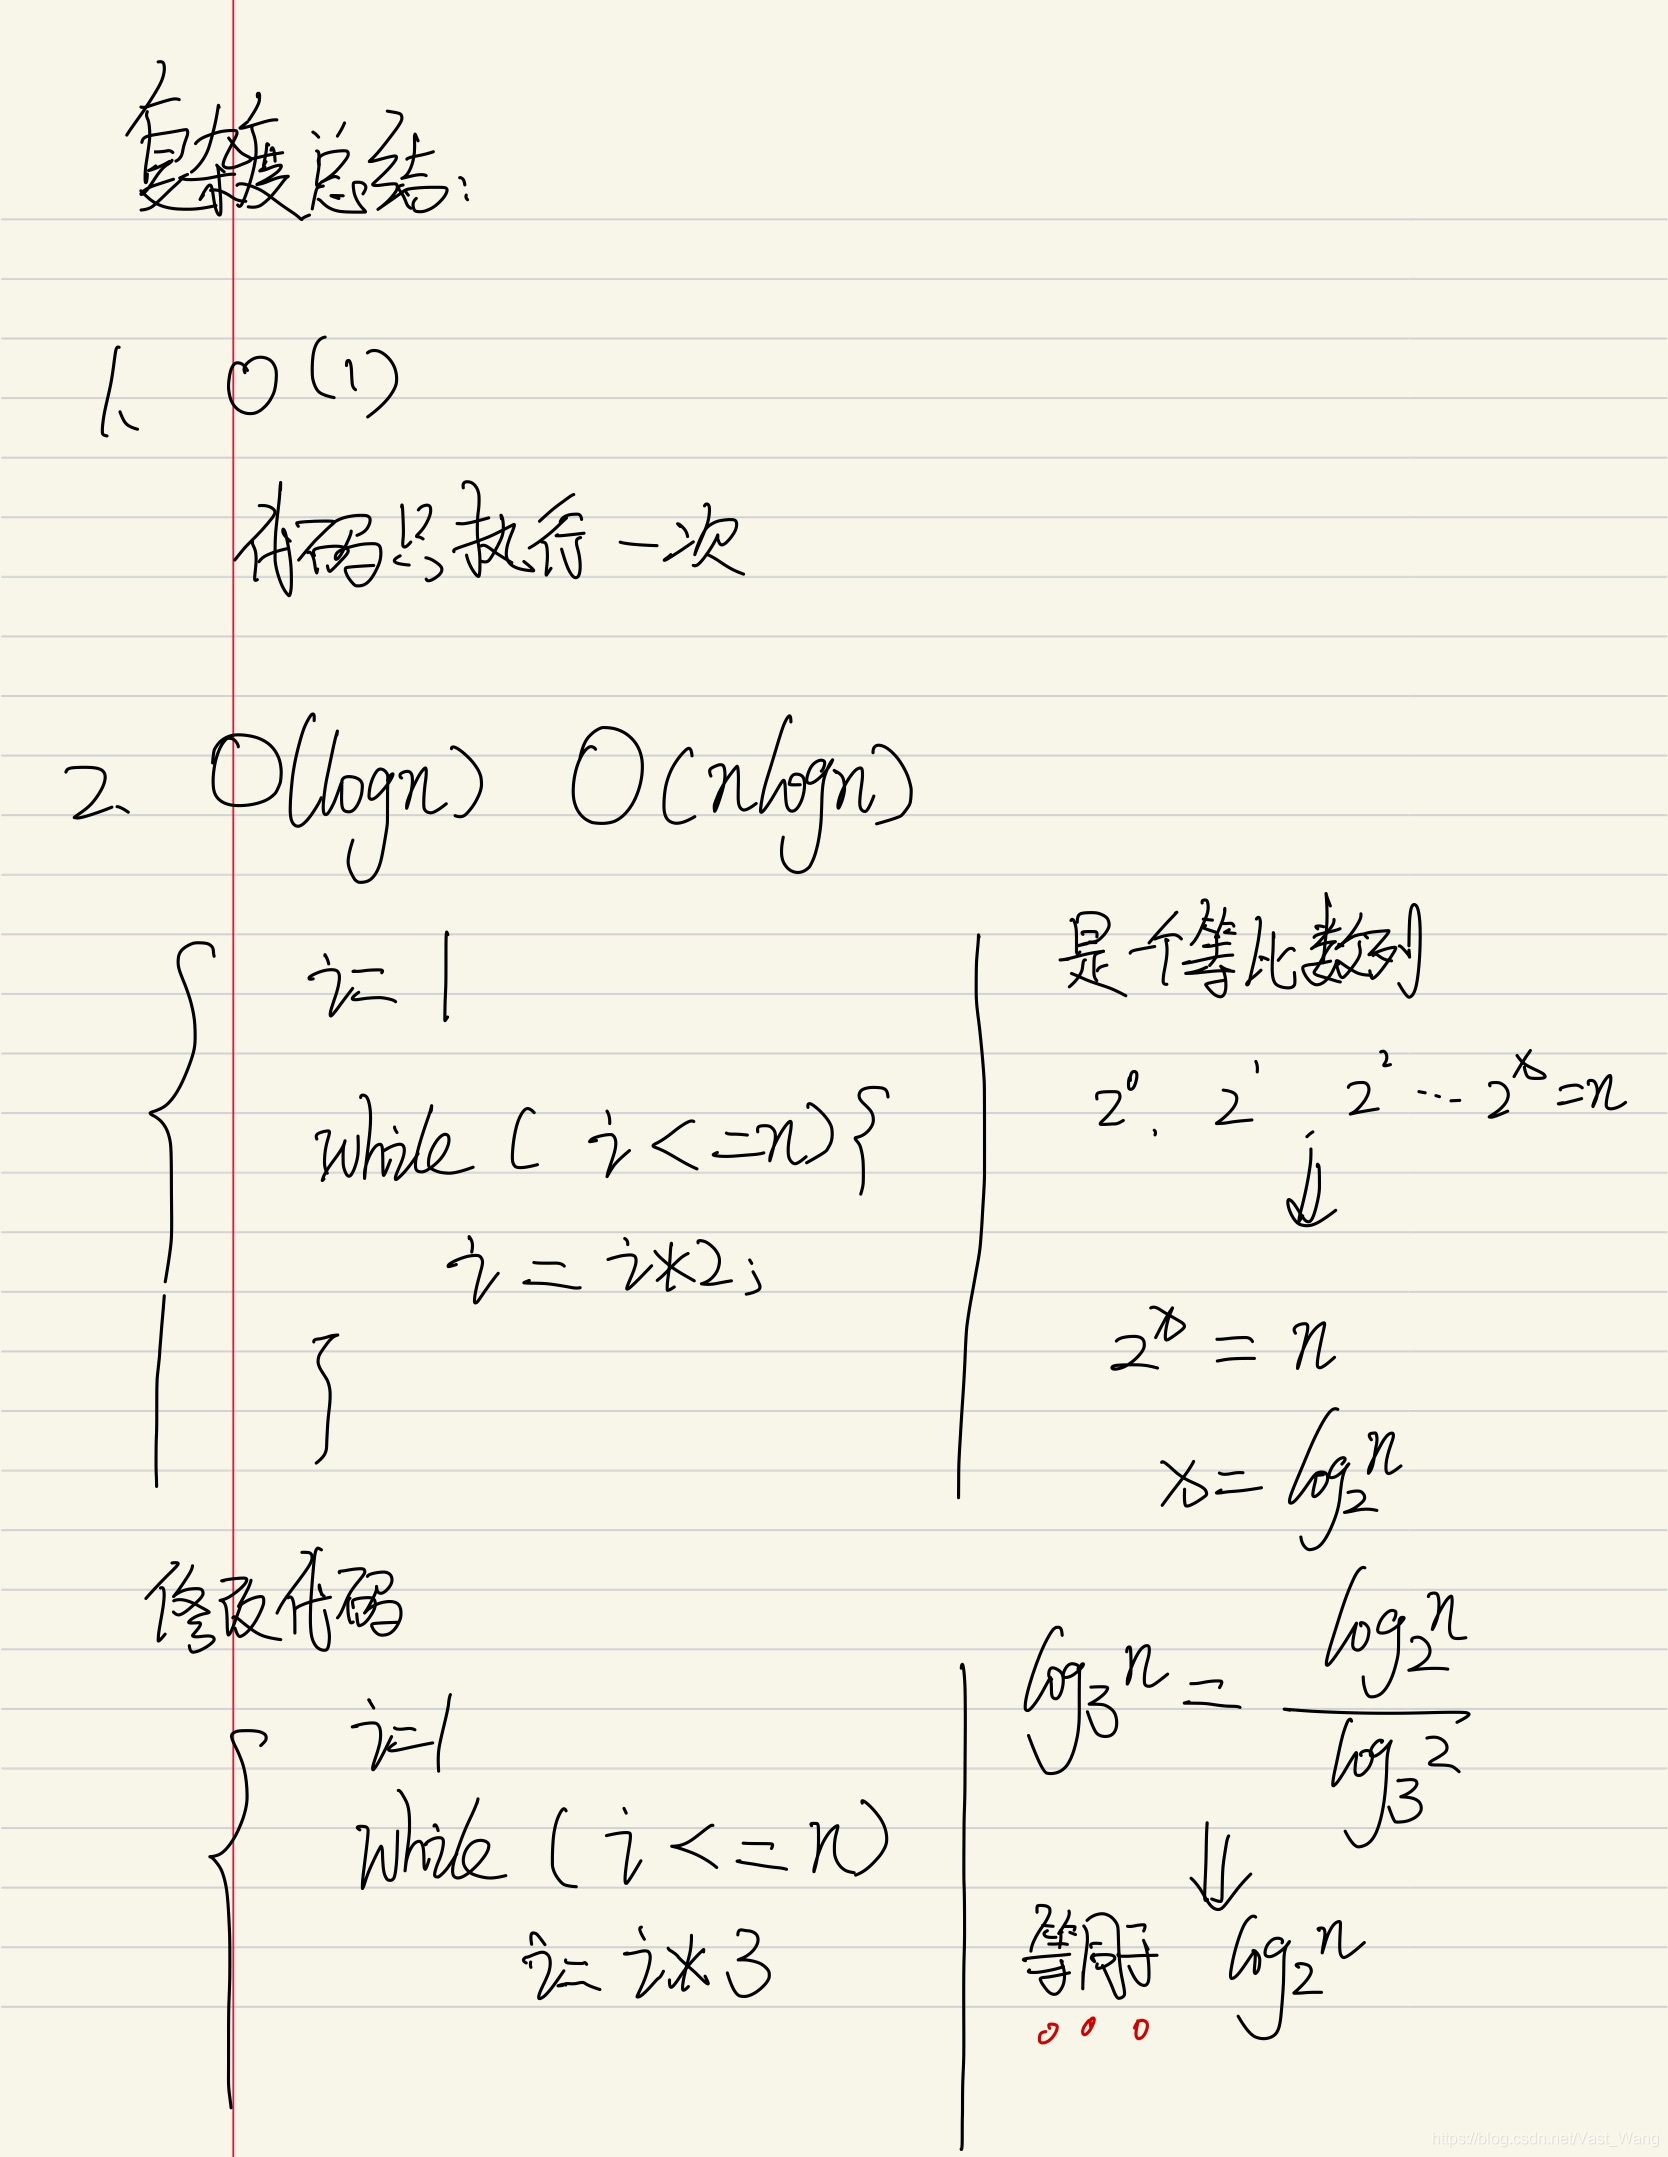 复杂度总结:
1、 O(1)
代码只执行一次
2、 O(logn) O(nlogn)
i=1
while ( i <=n){
i = i*2;
}
是个等比数列
2^0, 2^1, 2^2 ... 2^x =n
↓
2^x = n
x= log_2 n
修改代码
i=1
while ( i <= n)
i= i* 3
log_3 n = log_2 n / log_3 2
⇓
等同于 log_2 n
https://blog.csdn.net/Vast_Wang